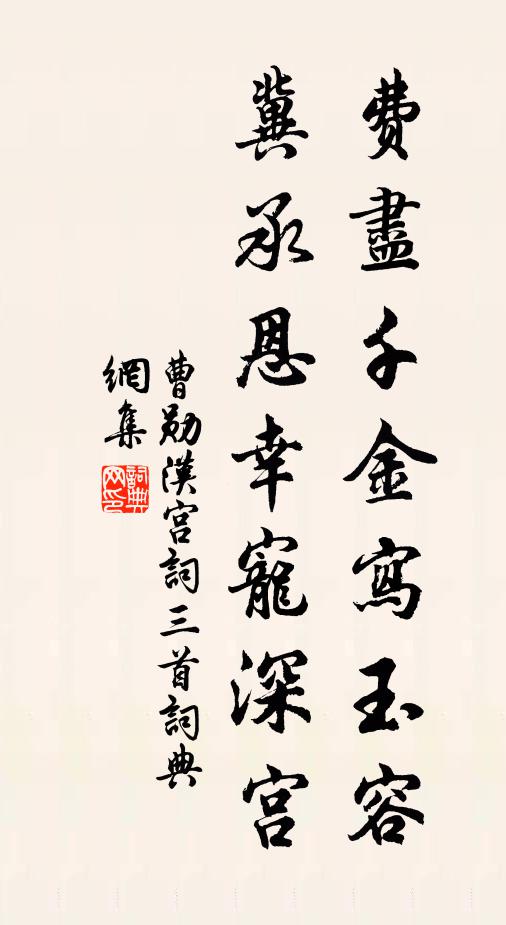 費盡千金寫玉容
冀承恩幸寵深宮
曹勛漢宮詞三首詞典
網集
詞典
网印